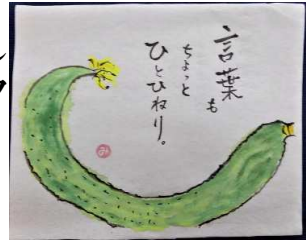 言葉も
ちょっと
ひとひねり。